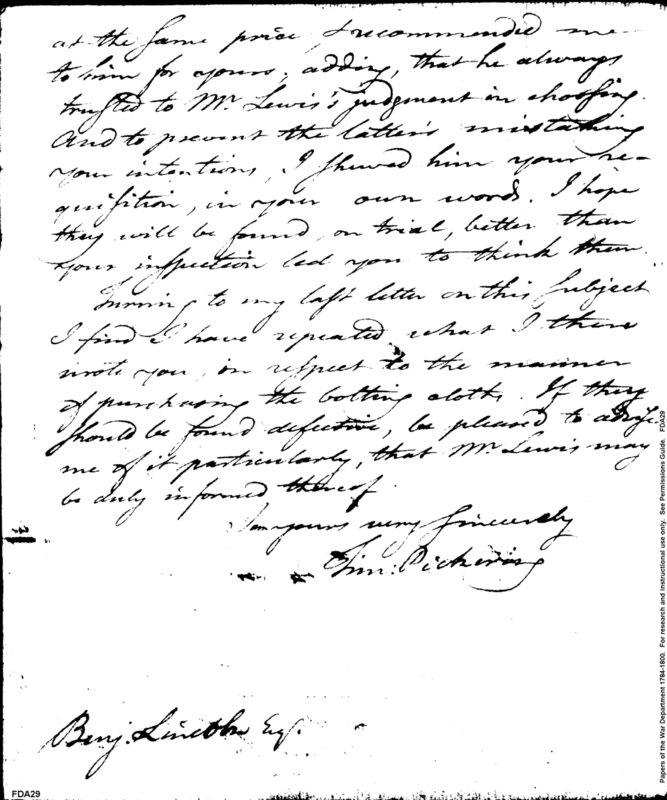 at the same price & recommended me
to him for yours; adding, that he always
trusted to Mr. Lewis's judgment in choosing.
And to prevent the latter's mistaking
your intentions, I shewed him your re-
quisition, in your own words. I hope
they will be found, on trial, better than
your inspection led you to think them.
Turning to my last letter on this subject
I find I have repeated what I there
wrote you, in respect to the manner
of purchasing the bolting cloths. If they
should be found defective, be pleased to advise
me of it particularly, that Mr. Lewis may
be duly informed thereof.
I am yours very sincerely
Tim: Pickering
Benj. Lincoln Esq.
FDA29
Papers of the War Department 1784-1800. For research and instructional use only. See Permissions Guide. FDA29